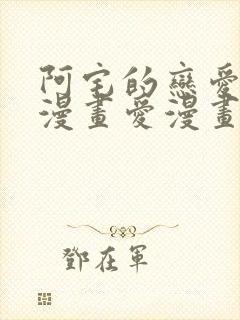 阿宅的戀愛
漫畫愛漫畫
鄧在軍